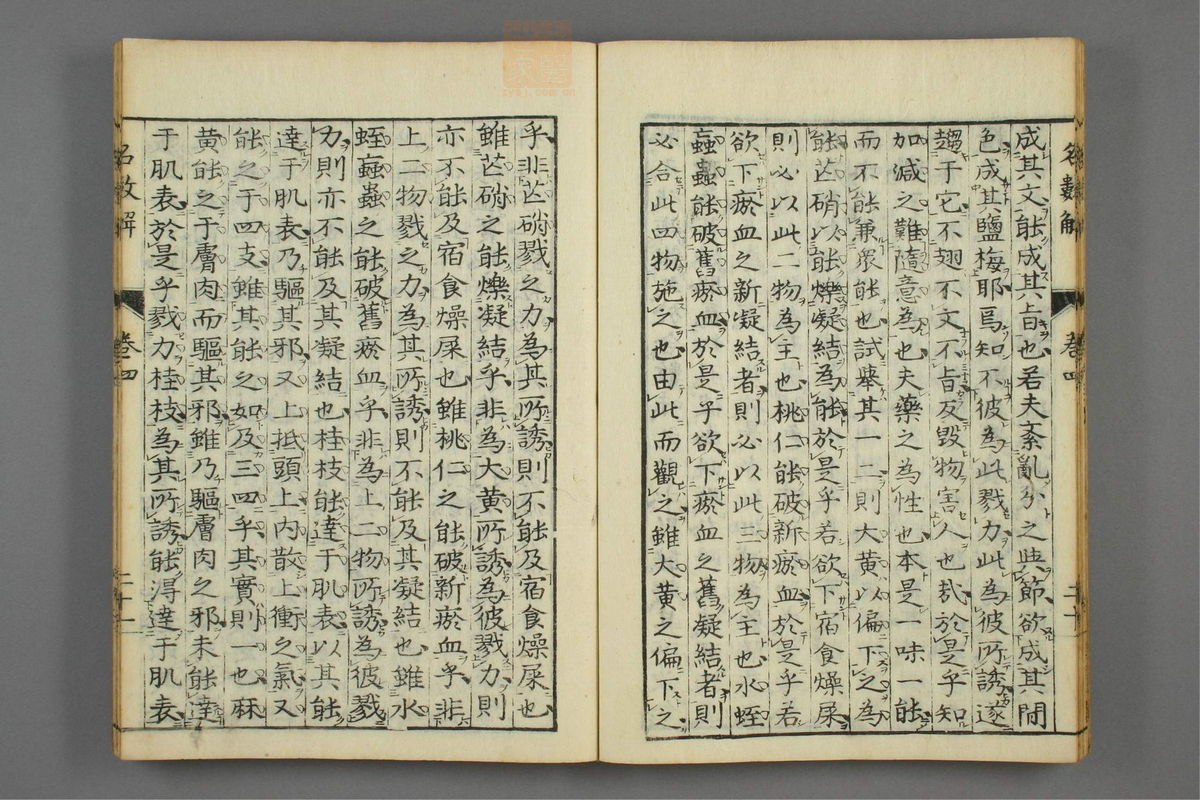 成其文能成其旨也若夫紊亂分之與節欲成其閒
色成其鹽梅耶焉知不彼為此戮力此為彼所誘遂
趨于它不翅不文不旨反毀物害人也哉於是乎知
加減之難隨意為也夫藥之為性也本是一味一能
而不能兼衆能也試舉其一二則大黃以偏下之為
能芒硝以能爍凝結為能於是乎若欲下宿食燥屎
則必以此二物為主也桃仁能破新瘀血於是乎若
欲下瘀血之新凝結者則必以此三物為主也水蛭
蝱蟲能破舊瘀血於是乎欲下瘀血之舊凝結者則
必合此四物施之也由此而觀之雖大黃之偏下之
卷四
乎非芒硝戮之力為其所誘則不能及宿食燥屎也
雖芒硝之能爍凝結乎非為大黃所誘為彼戮力則
亦不能及宿食燥屎也雖桃仁之能破新瘀血乎非
上二物戮之力為其所誘則不能及其凝結也雖水
蛭蝱蟲之能破舊瘀血乎非為上二物所誘為彼戮
力則亦不能及其凝結也桂枝能達于肌表以其能
達于肌表乃驅其邪又上抵頭上內散上衝之氣又
能之于四支雖其能之如及三四乎其實則一也麻
黃能之于膚肉而驅其邪雖乃驅膚肉之邪未能達
于肌表於是乎戮力桂枝為其所誘能得達于肌表
卷四
二十一